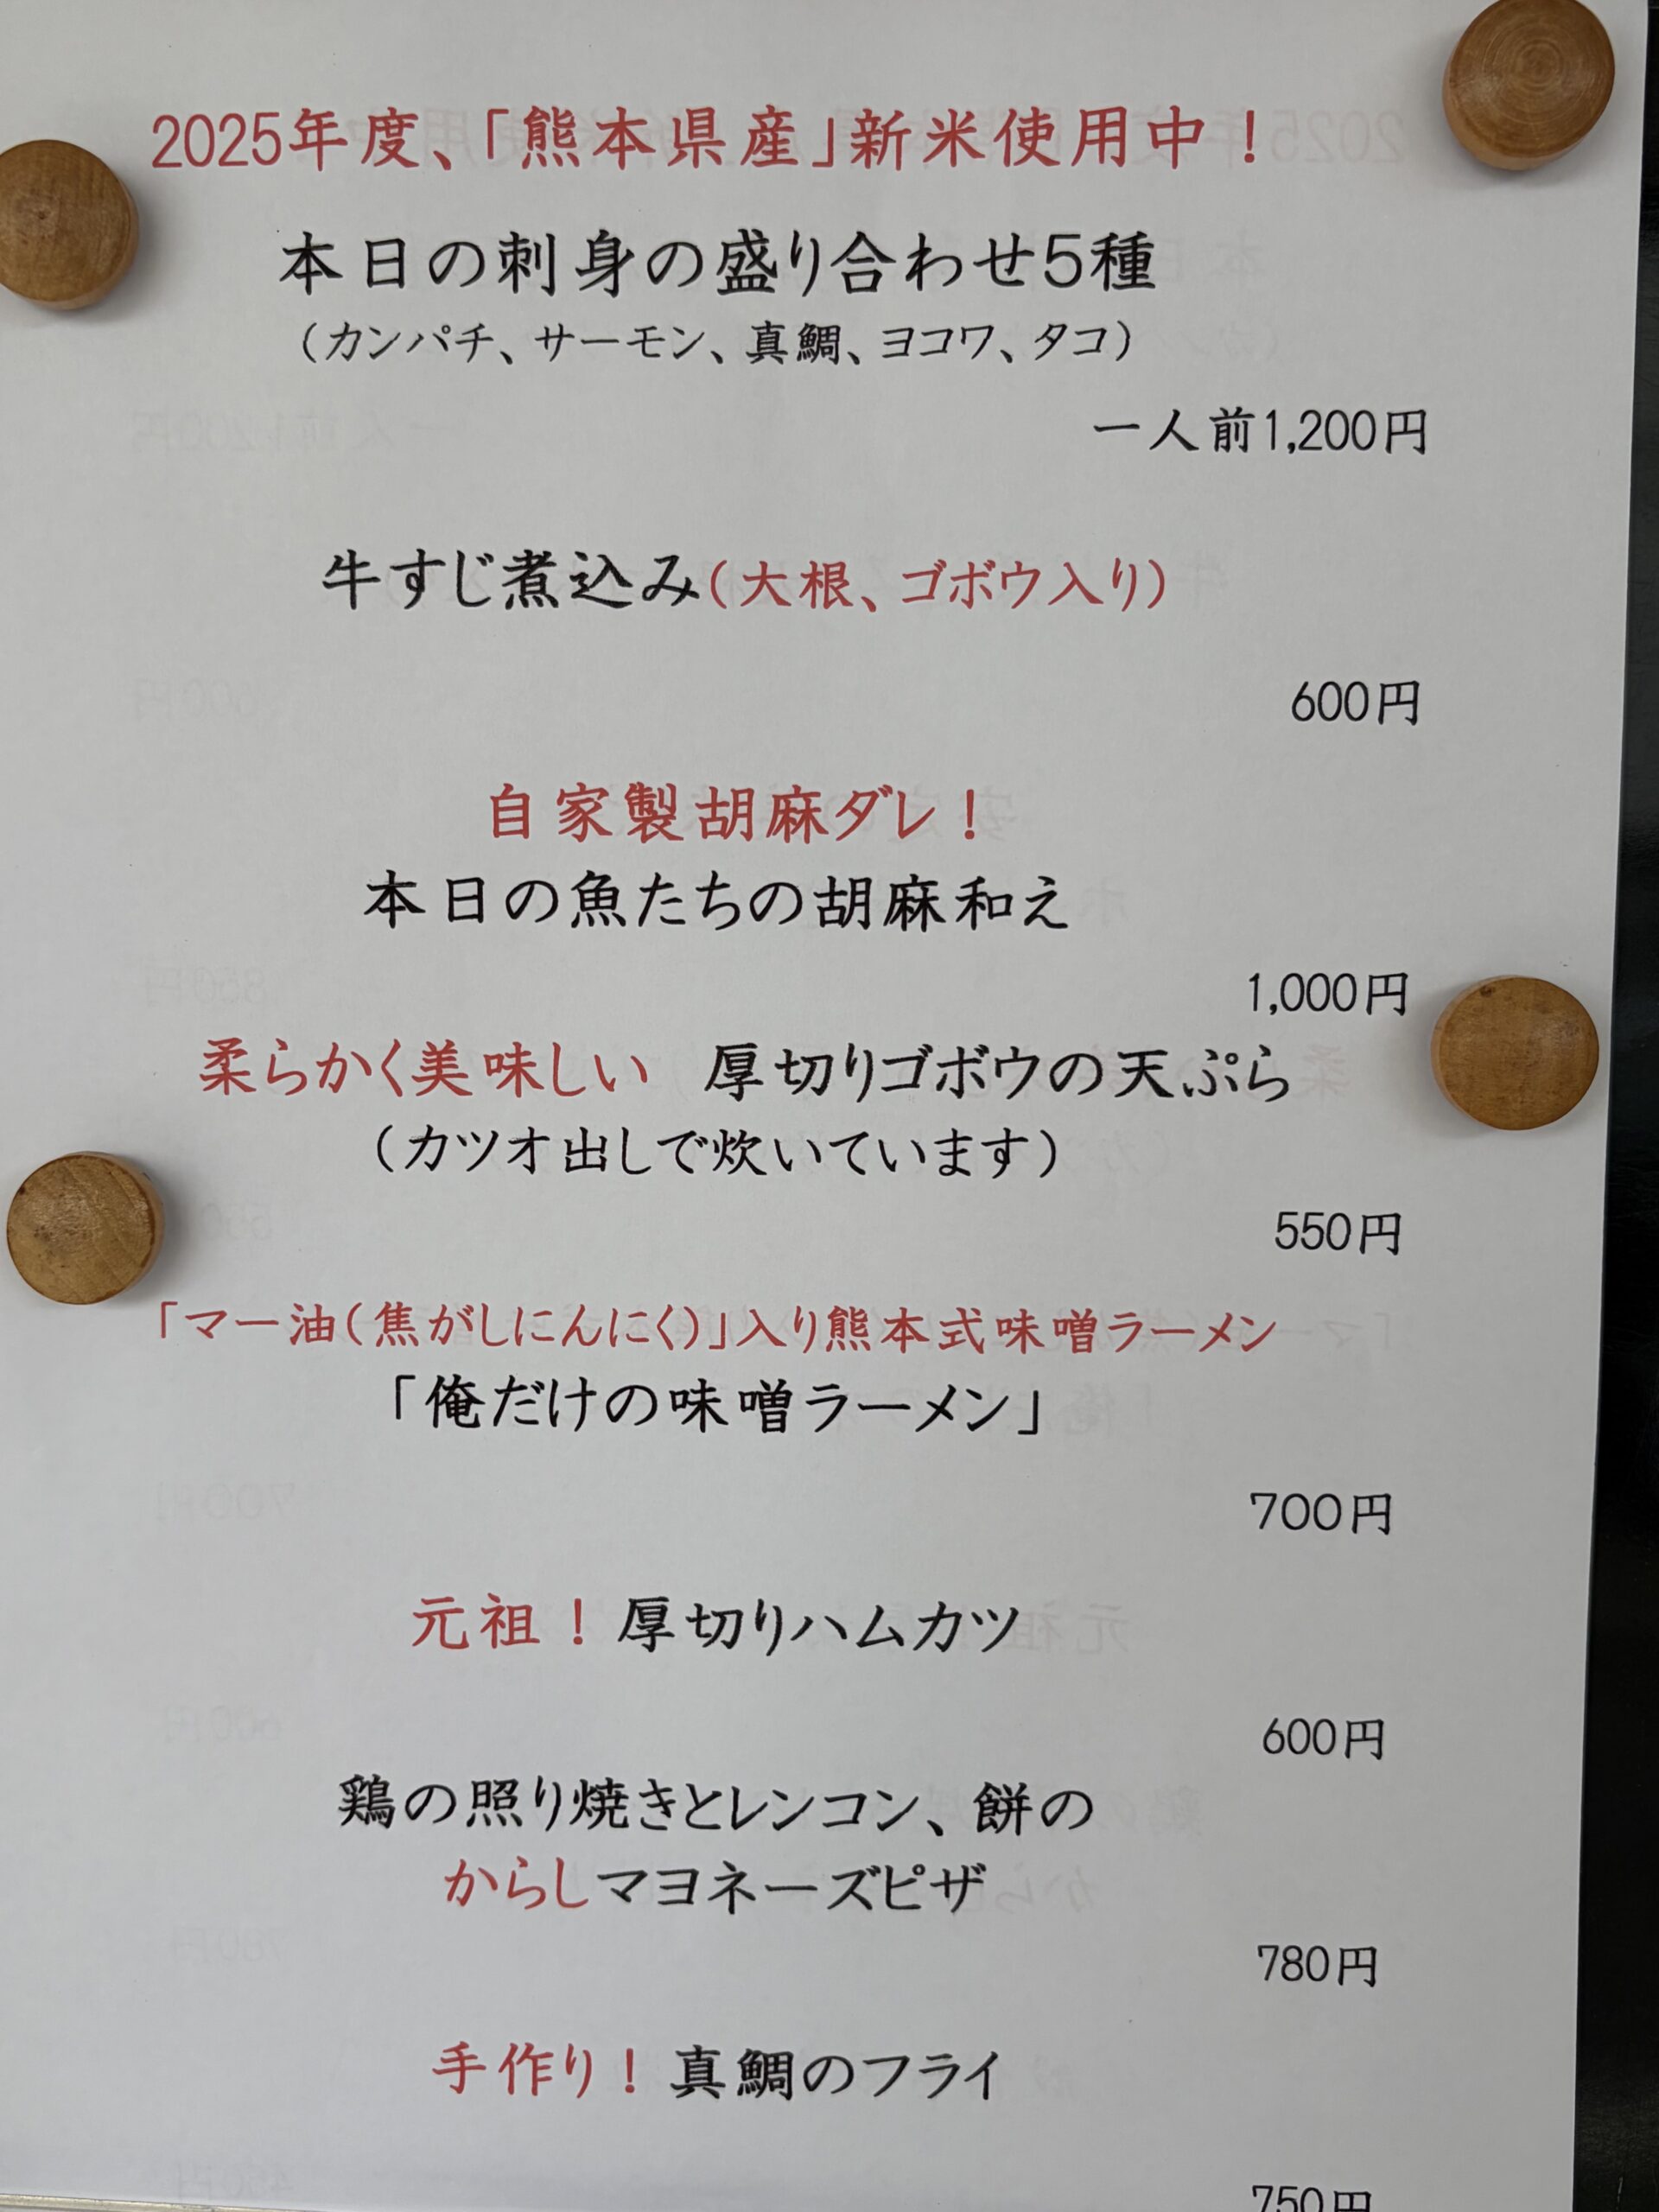 2025年度、「熊本県産」新米使用中！
本日の刺身の盛り合わせ5種
（カンパチ、サーモン、真鯛、ヨコワ、タコ）
一人前1,200円
牛すじ煮込み（大根、ゴボウ入り）
600円
自家製胡麻ダレ！
本日の魚たちの胡麻和え
1,000円
柔らかく美味しい　厚切りゴボウの天ぷら
（カツオ出しで炊いています）
550円
「マー油（焦がしにんにく）」入り熊本式味噌ラーメン
「俺だけの味噌ラーメン」
700円
元祖！厚切りハムカツ
600円
鶏の照り焼きとレンコン、餅の
からしマヨネーズピザ
780円
手作り！真鯛のフライ
750円